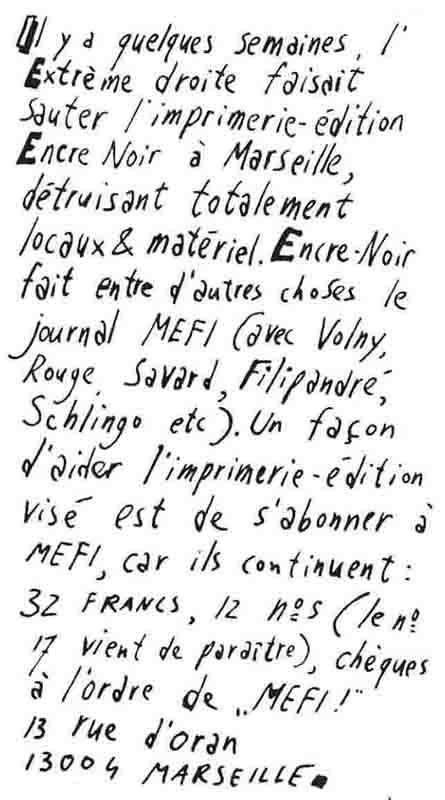 Il y a quelques semaines, l'
Extrème droite faisait
sauter l'imprimerie-édition
Encre Noir à Marseille,
détruisant totalement
locaux & matériel. Encre-Noir
fait entre d'autres choses le
journal MEFI (avec Volny,
Rouge, Savard, Filipandré,
Schlingo etc). Un façon
d'aider l'imprimerie-édition
visé est de s'abonner à
MEFI, car ils continuent :
32 FRANCS, 12 nºs (le nº
17 vient de paraître), chèques
à l'ordre de „MEFI!"
13 rue d'Oran
13004 MARSEILLE.